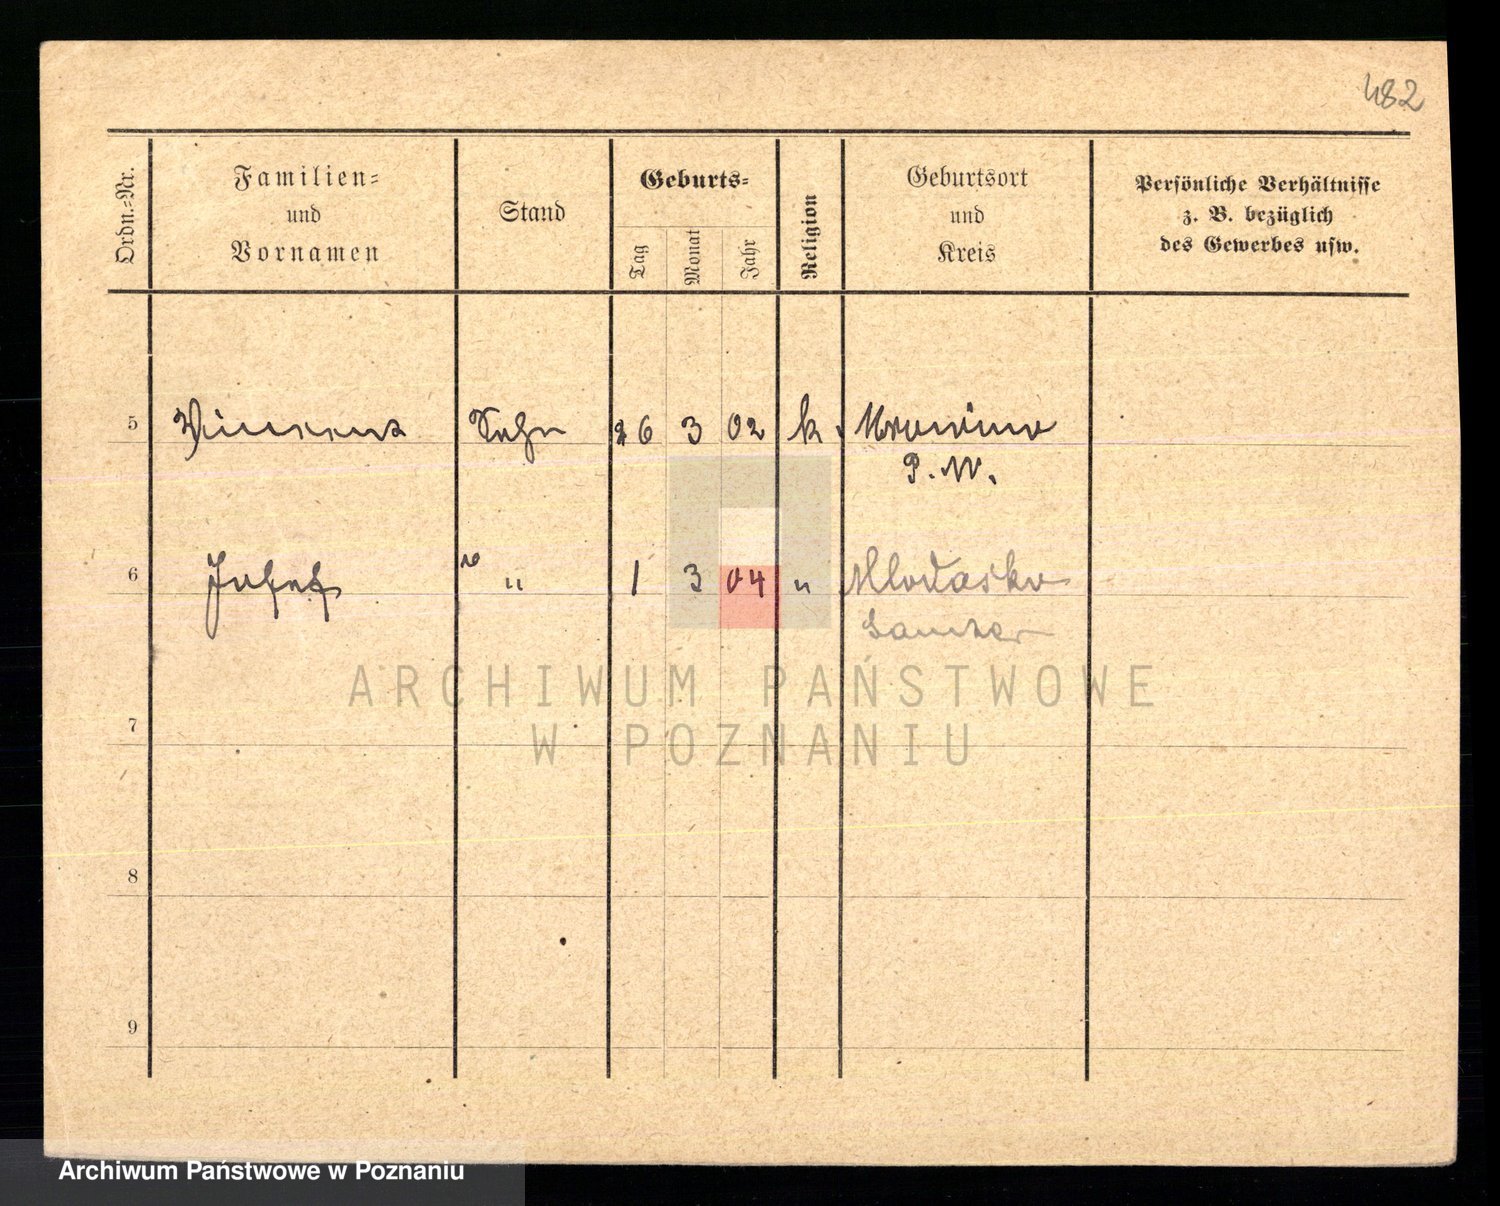 482
Ordn.-Nr.
Familien-
und
Vornamen
Stand
Geburts-
Tag
Monat
Jahr
Religion
Geburtsort
und
Kreis
Persönliche Verhältnisse
z. B. bezüglich
des Gewerbes usw.
5 Vincent Sohn 26 3 02 k.
P. W.
6 Josef " 1 3 04 "
Samter
ARCHIWUM PAŃSTWOWE
W POZNANIU
7
8
9
Archiwum Państwowe w Poznaniu